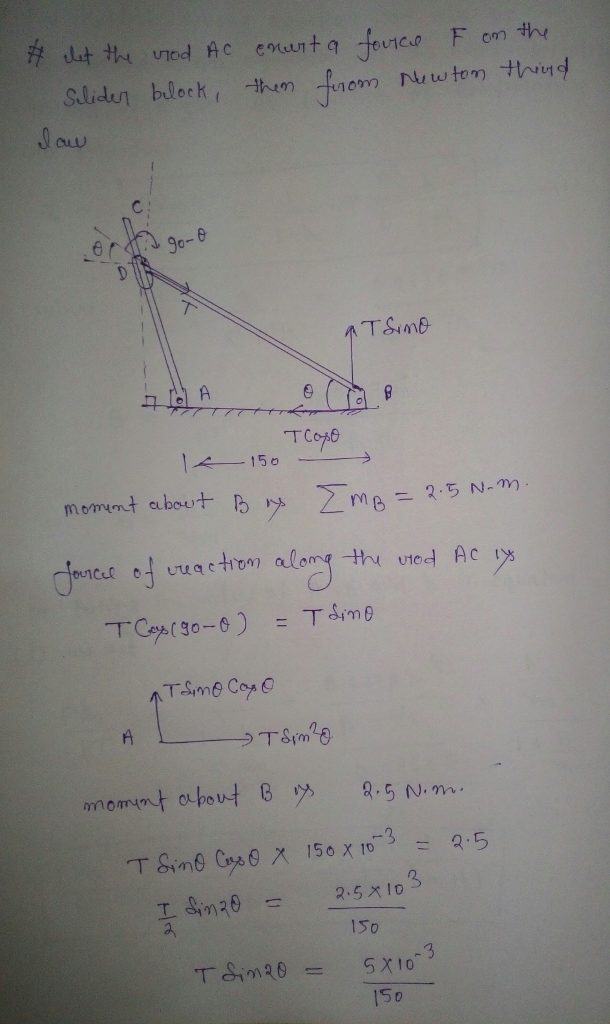 # let the rod AC exert a force F on the
Slider block, then from Newton third
law
C
θ
90-θ
D
T
T Sinθ
A
θ
B
T Cosθ
150
moment about B is ΣMB = 2.5 N-m.
force of reaction along the rod AC is
T Cos(90-θ) = T Sinθ
T Sinθ Cosθ
A
T Sin²θ
moment about B is 2.5 N.m.
T Sinθ Cosθ × 150 × 10⁻³ = 2.5
T/2 Sin2θ = 2.5×10³/150
T Sin2θ = 5×10⁻³/150